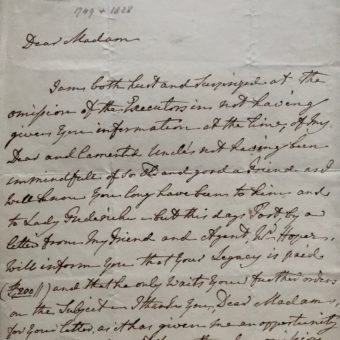 1749 + 1828
Dear Madam
I am both hurt and surprized at the
omission of the Executors in not having
given You information at the time, of my
Dear and lamented Uncle's not having been
unmindfull of so old and good a Friend as I
well know You long have been to him and
to Lady Frederick - but this days Post by a
letter from My Friend and Agent, Mr
will inform You that Your Legacy is paid
(£200) and that he only waits Your further orders
on the Subject - I thank You, Dear Madam,
for Your letter, as it has given me an opportunity